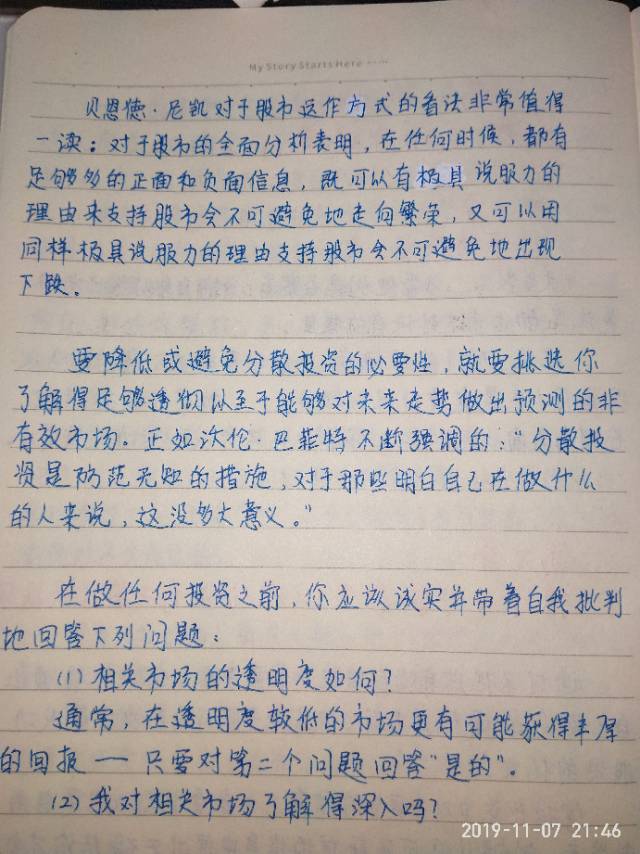 My Story Starts Here ······
贝恩德·尼凯对于股市运作方式的看法非常值得
一读：对于股市的全面分析表明，在任何时候，都有
足够多的正面和负面信息，既可以有极具说服力的
理由来支持股市会不可避免地走向繁荣，又可以用
同样极具说服力的理由支持股市会不可避免地出现
下跌。
要降低或避免分散投资的必要性，就要挑选你
了解得足够透彻以至于能够对未来走势做出预测的非
有效市场。正如沃伦·巴菲特不断强调的：“分散投
资是防范无知的措施，对于那些明白自己在做什么
的人来说，这没多大意义。”
在做任何投资之前，你应该诚实并带着自我批判
地回答下列问题：
(1) 相关市场的透明度如何？
通常，在透明度较低的市场更有可能获得丰厚
的回报 — 只要对第二个问题回答“是的”。
(2) 我对相关市场了解得深入吗？
2019-11-07 21:46